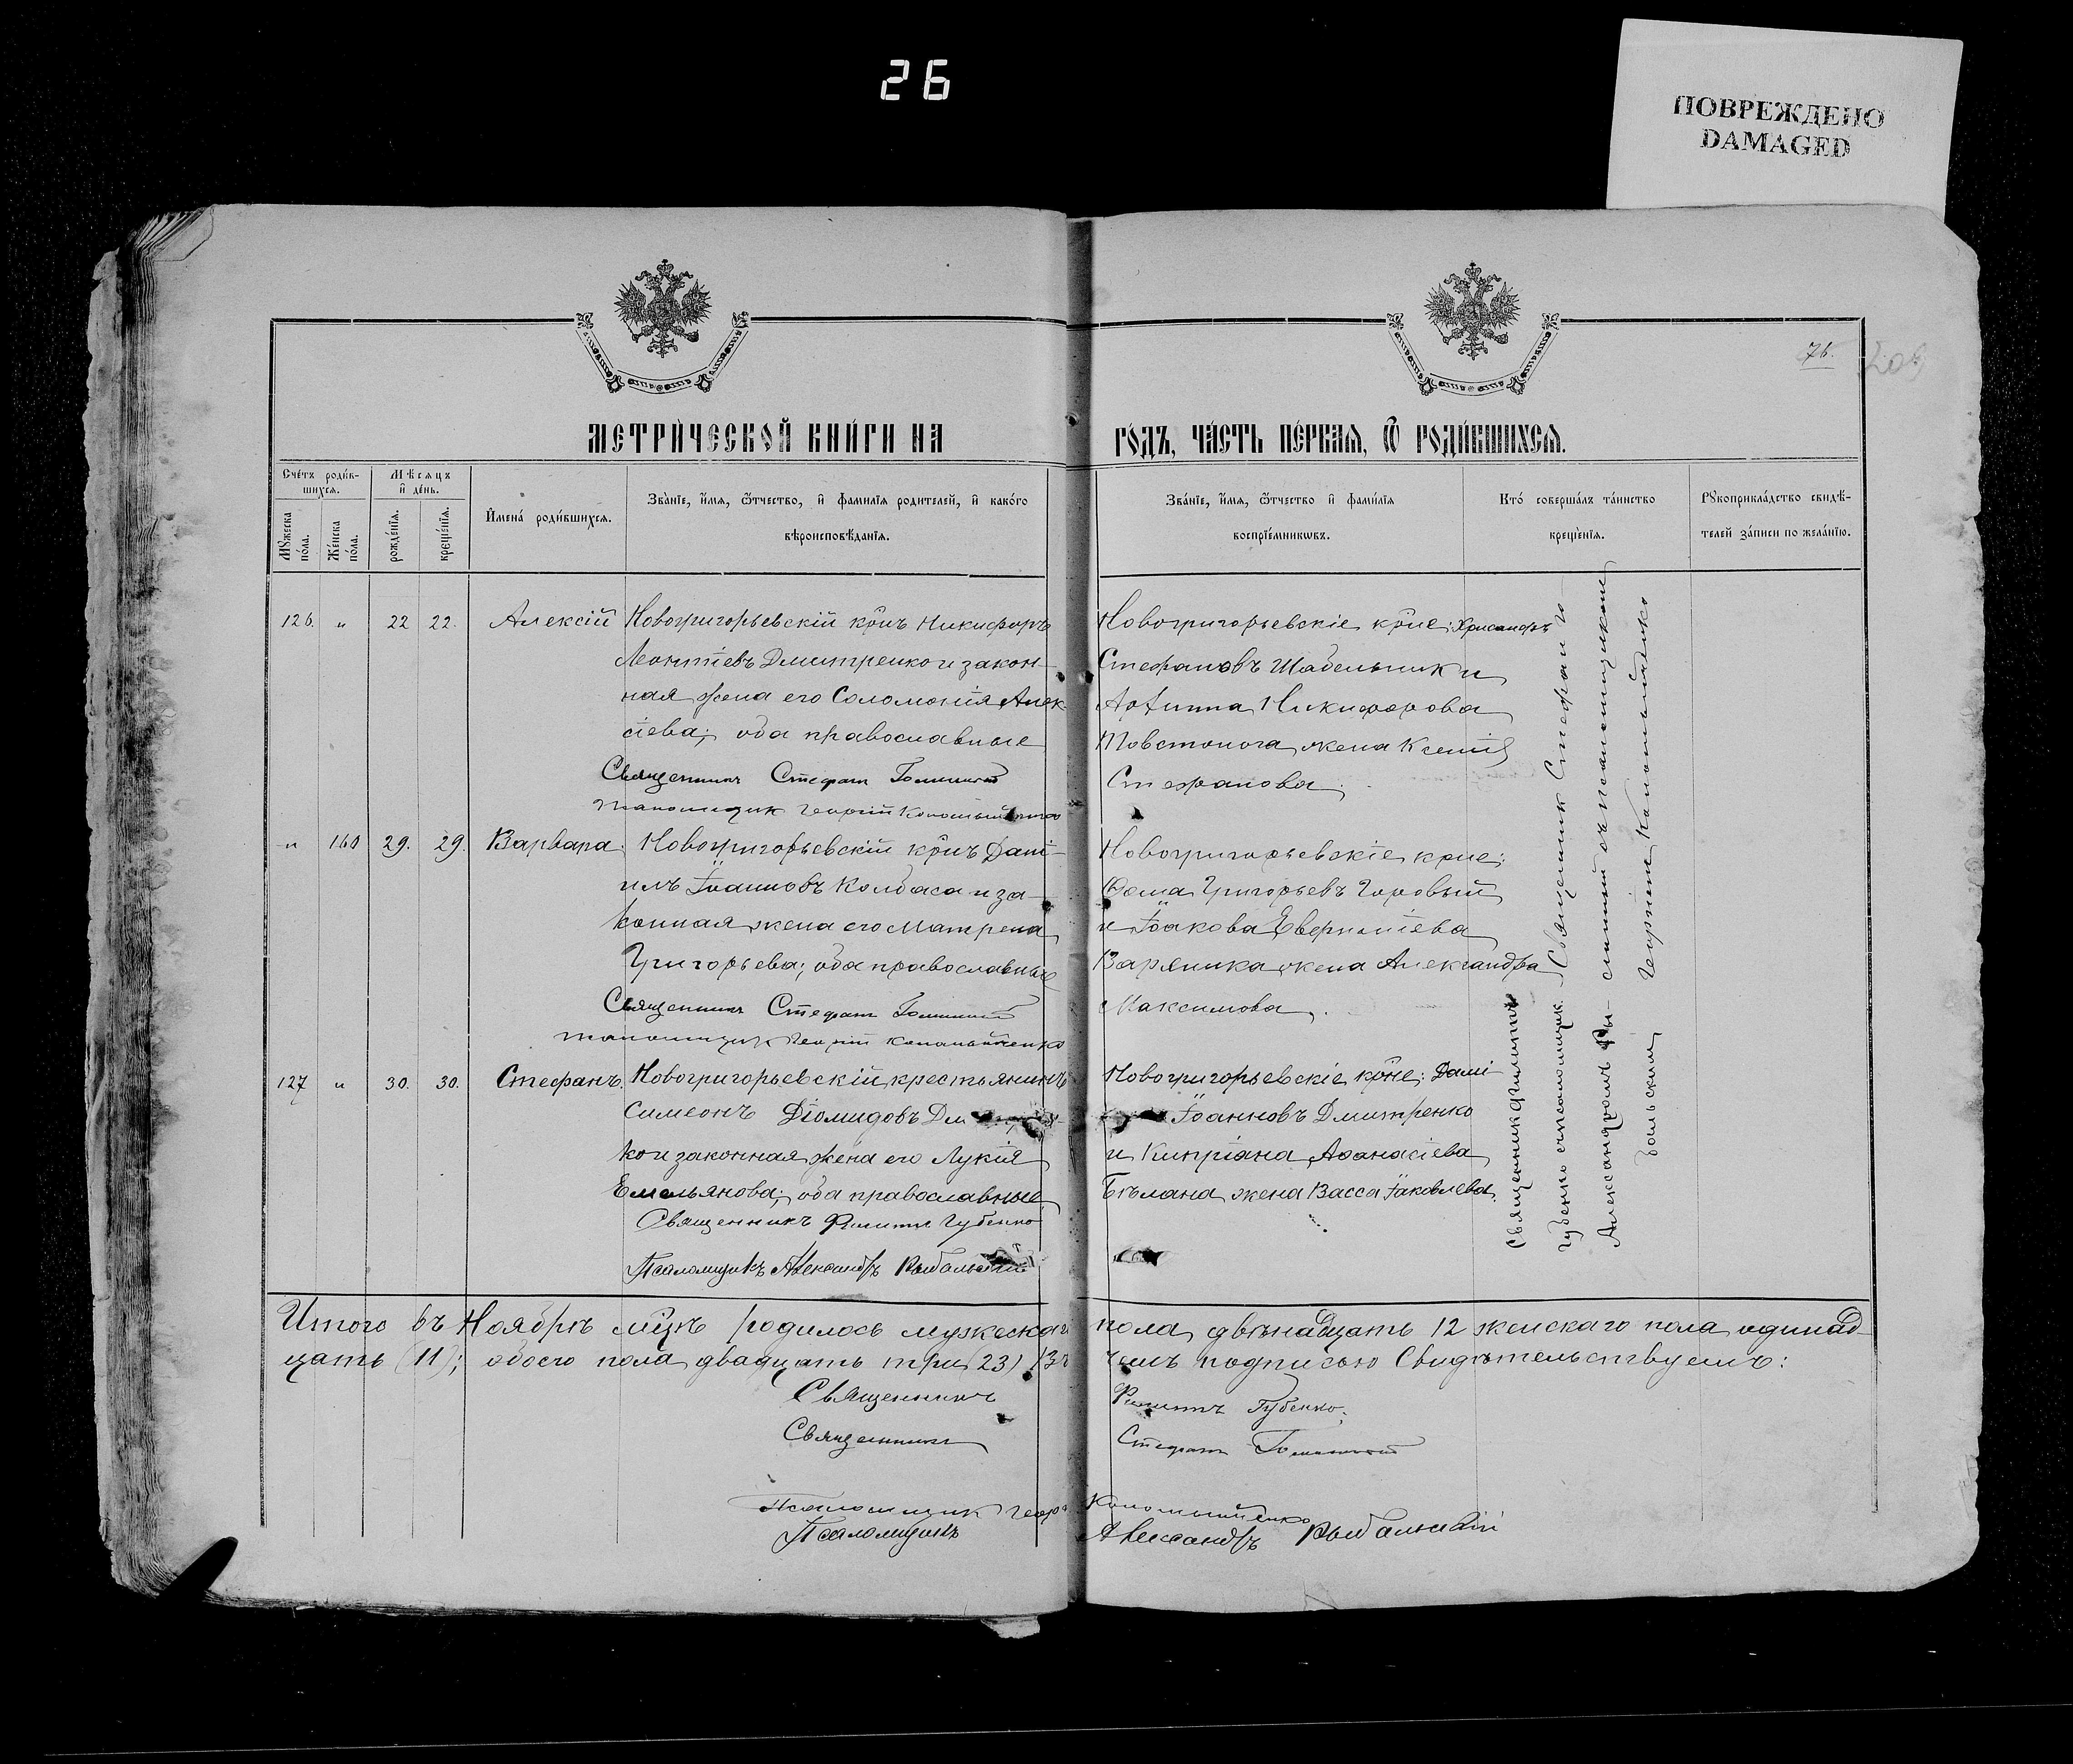 26
ПОВРЕЖДЕНО
DAMAGED
76.
МЕТРИ́ЧЕСКОЙ КНИ́ГИ НА
ГО́ДЪ, ЧА́СТЬ ПЕ́РВАЯ, Ѿ РОДИ́ВШИХСЯ.
Сче́тъ роди́в-
шихся.
Мѣсяцъ
и де́нь.
Мꙋжеска
по́ла.
Же́нска
по́ла.
рожде́нїя.
креще́нїя.
Имена́ роди́вшихся.
Зва́нїе, и́мя, ѻ́тчество, и фами́лїя роди́телей, и како́го
вѣроисповѣ́данїя.
Зва́нїе, и́мя, ѻ́тчество и фами́лїя
воспрїе́мникѡвъ.
Кто́ соверша́лъ та́инство
креще́нїя.
Рꙋкоприкла́дство свидѣ́-
телей за́писи по жела́нїю.
126. " 22 22. Алексій Новогригорьевскій крнъ Никифоръ
Леонтіевъ Дмитренко и закон-
ная жена его Соломонія Алек
сіева; оба православные
Священникъ Стефанъ
Новогригорьевскіе крне: Хрисанфъ
Стефановъ Шабельник и
Никифорова
Товстонога жена Ксенія
Стефанова.
" 160 29. 29. Варвара. Новогригорьевскій крнъ Дані-
илъ Іоанновъ Колбаса и за-
конная жена его Матрена
Григорьева; оба православные
Священникъ Стефанъ
Георгій Коломыйченко
Новогригорьевскіе крне:
Ѳома Григорьевъ Горовый
и Іакова
жена Александра
Максимова.
127 " 30. 30. Стефанъ. Новогригорьевскій крестьянинъ
Симеонъ Діомидовъ Дм
ко и законная жена его Лукія
Емельянова; оба православные
Священникъ Филиппъ Губенко
Псаломщикъ Александръ Рыбальскій
Новогригорьевскіе крне: Дані-
Іоанновъ Дмитренко
и Кипріана Аѳанасіева
Бѣлана жена Васса Іаковлева.
Священник Филиппъ
Губенко съ псаломщик.
Александромъ Ры-
бальским
Священник Стефан
съ псаломщиком
Георгіем
Итого въ Ноябрѣ мцѣ родилось мужескаго
пола двѣнадцать 12 женскаго пола одинад-
цать (11); обоего пола двадцать три (23)
чемъ подписью свидѣтельствуемъ:
Священникъ Филиппъ Губенко.
Священникъ Стефанъ
Псаломщик
Псаломщикъ Александръ Рыбальскій